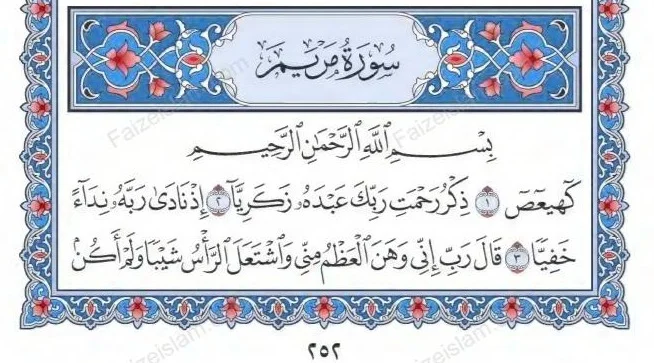 سُورَةُ مَرْيَمَ
بِسْمِ ٱللَّهِ ٱلرَّحْمَٰنِ ٱلرَّحِيمِ
كٓهيعٓصٓ ١ ذِكْرُ رَحْمَتِ رَبِّكَ عَبْدَهُۥ زَكَرِيَّآ ٢ إِذْ نَادَىٰ رَبَّهُۥ نِدَآءً
خَفِيًّا ٣ قَالَ رَبِّ إِنِّي وَهَنَ ٱلْعَظْمُ مِنِّي وَٱشْتَعَلَ ٱلرَّأْسُ شَيْبًا وَلَمْ أَكُنْ
٢٥٢
Faizeislam.com
Faizeislam.com
Faizeislam.com